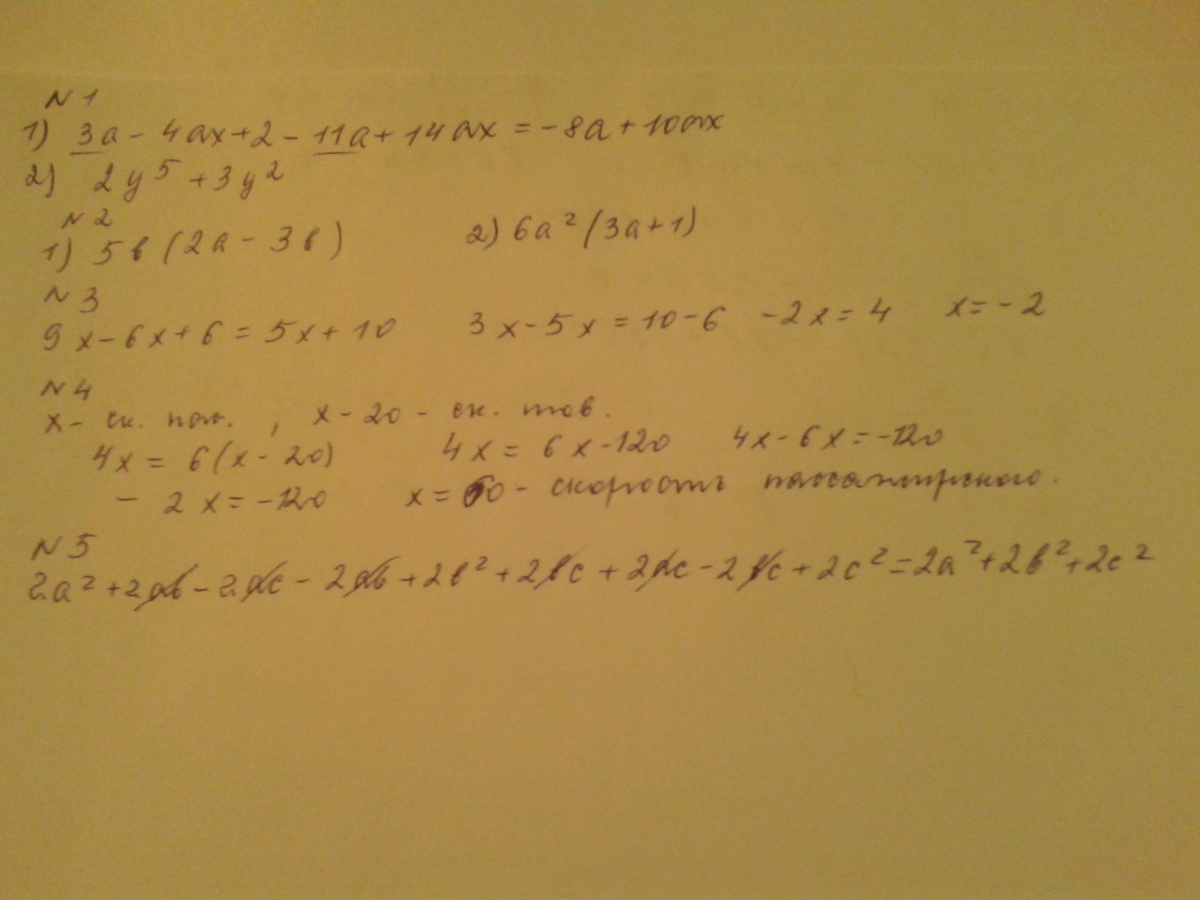 N 1
1) 3a - 4ax + 2 - 11a + 14ax = -8a + 10ax
2) 2y⁵ + 3y²
N 2
1) 5в (2a - 3в) 2) 6a² (3a + 1)
N 3
9x - 6x + 6 = 5x + 10 3x - 5x = 10 - 6 -2x = 4 x = -2
N 4
x - ск. пас. , x - 20 - ск. тов.
4x = 6(x - 20) 4x = 6x - 120 4x - 6x = -120
- 2x = -120 x = 60 - скорость пассажирского.
N 5
2a² + 2ав - 2ac - 2ав + 2в² + 2вc + 2ac - 2вc + 2c² = 2a² + 2в² + 2c²